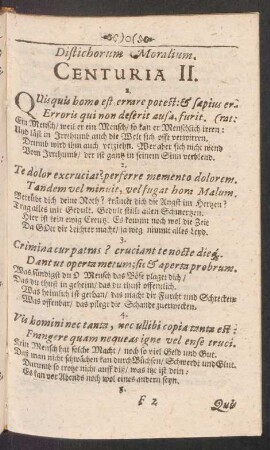 Distichorum Moralium.
CENTURIA II.
1.
QUisquis homo est, errare potest: & sæpius er-
Erroris qui non deserit ausa, furit. (rat:
Ein Mensch/ weil er ein Mensch/ so kan er Menschlich irren:
Und läst in Irrthumb auch die Welt sich offt verwirren.
Drumb wird ihm auch verziehn. Wer aber sich nicht wend
Vom Irrthumb/ der ist gantz in seinem Sinn verblend.
2.
Te dolor excruciat? perferre memento dolorem.
Tandem vel minuit, vel fugat hora Malum.
Betrübt dich deine Noth? kränckt dich die Angst im Hertzen?
Trag alles mit Gedult. Gedult stillt allen Schmertzen.
Hier ist kein ewig Creutz. Es kommt noch wol die Zeit
Da GOtt die leichter macht/ ja weg nimmt alles Leyd.
3.
Crimina cur patras? cruciant te nocte dieq;
Dant ut operta metum; sic & aperta probrum.
Was sündigst du O Mensch das Böse plaget dich/
Das du thust in geheim/ das du thust öffentlich.
Was heimlich ist gethan/ das macht dir Furcht und Schrecken
Was offenbar/ das pflegt dir Schande zuerwecken.
4.
Vis homini nec tanta, nec ulli bibi copia tanta est:
Frangere quam nequeas igne vel ense truci.
Kein Mensch hat solche Macht/ noch so viel Geld und Gut.
Das man nicht schwächen kan durch Büchsen/ Schwerdt und Glut.
Darumb so trotze nicht auff diß/ was itzt ist dein/
Es kan vor Abends noch wol eines andern seyn.
5.
F 2 Quis